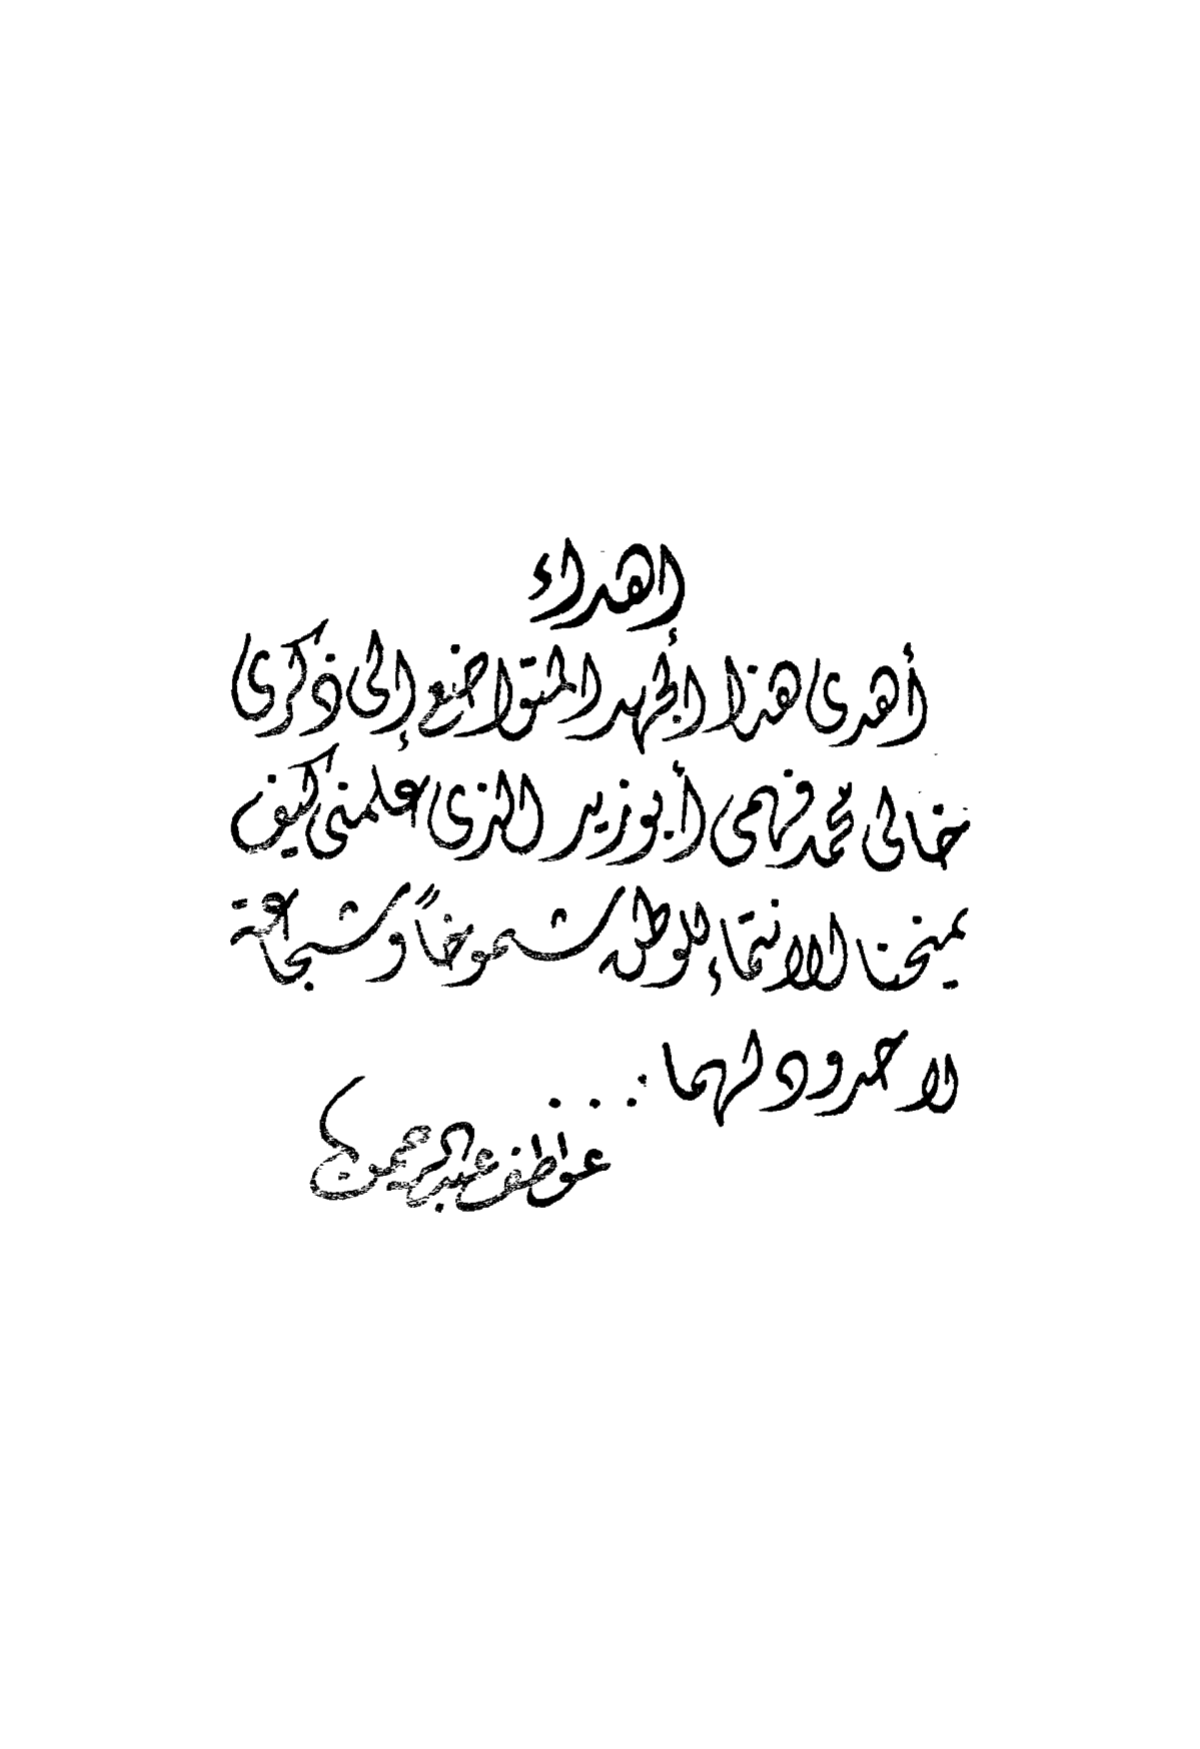 اهداء
أهدى هذا الجهد المتواضع إلى ذكرى
خالى محمد فهمى أبو زيد الذى علمنى كيف
يمنحنا الانتماء للوطن شموخاً وشجاعة
لا حدود لهما . . . .
عواطف عبد الرحمن